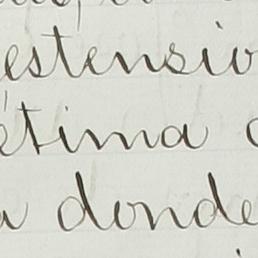 estensio
étima
a donde